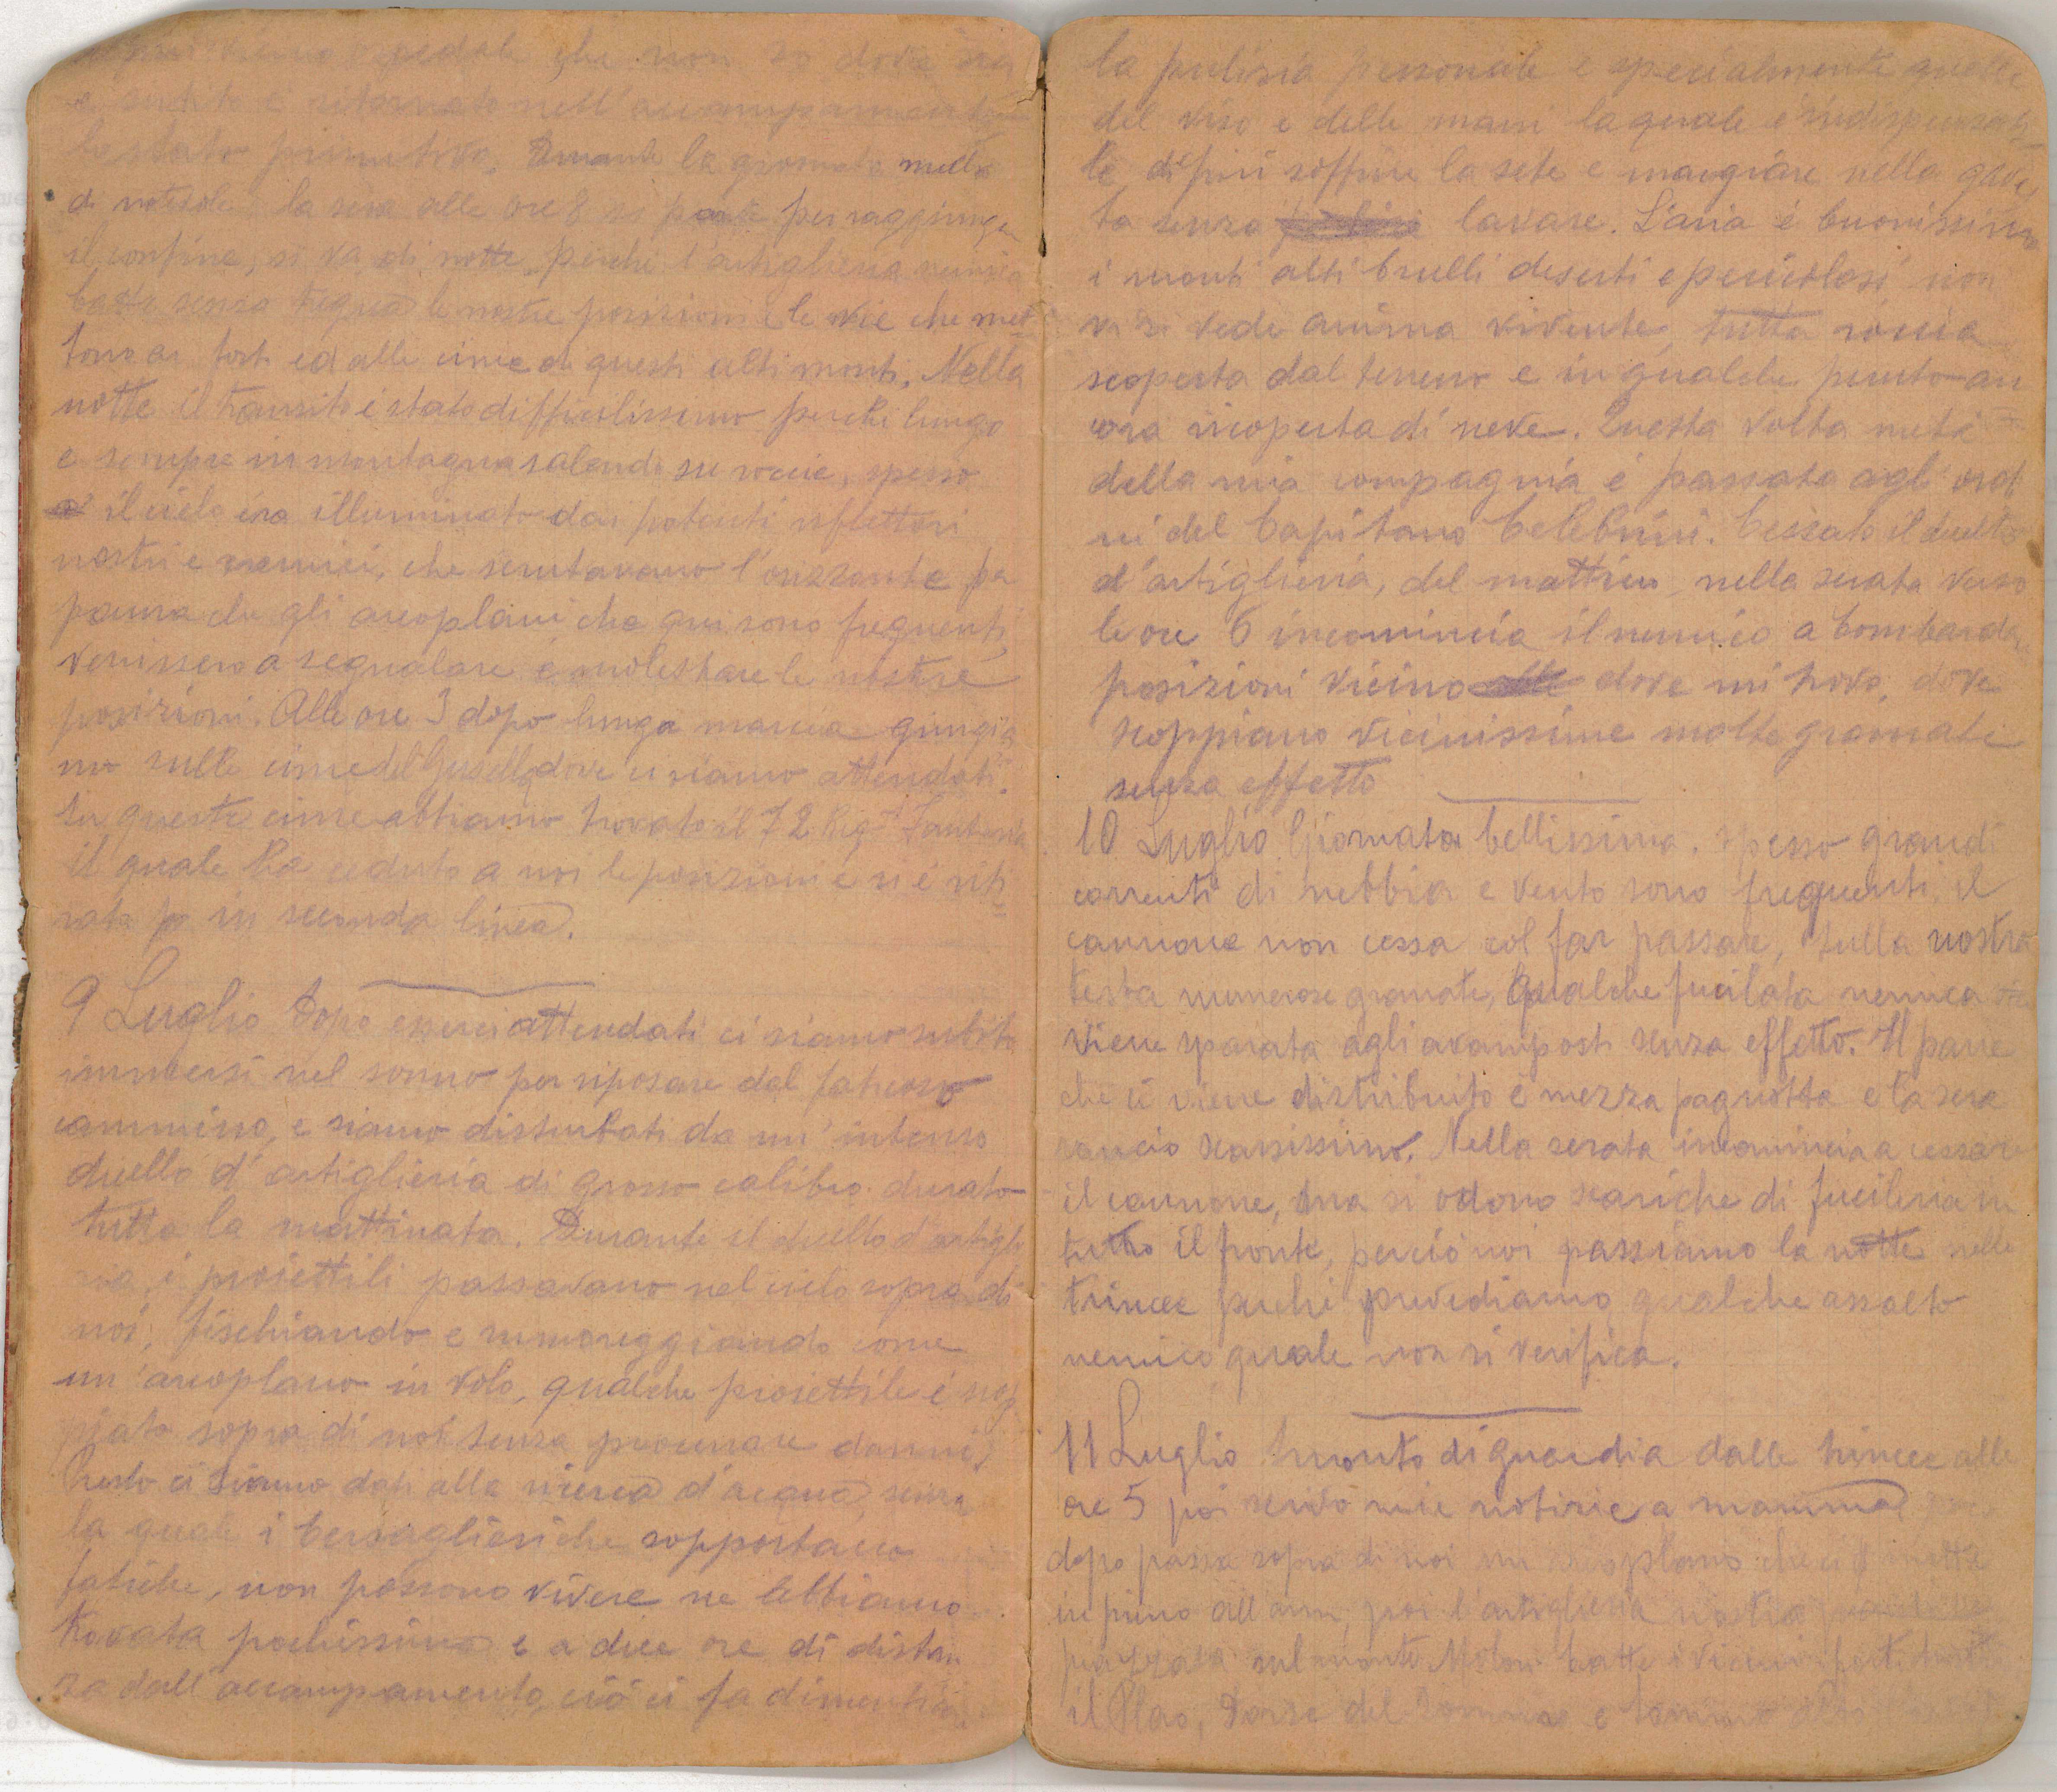 ospedale che non so dove sia
e subito è ritornato nell'accampamento
lo stato primitivo. Durante la giornata nulla
di notevole la sera alle ore 8 si parte per raggiunge
il confine, si va di notte, perchè l'artiglieria nemica
batte senza tregua le nostre posizioni e le vie che met
tono ai forti ed alle cime di questi alti monti. Nella
notte il transito è stato difficilissimo perchè lungo
e sempre in montagna salendo su roccie, spesso
il cielo era illuminato dai potenti riflettori
nostri e nemici, che scrutavano l'orizzonte pe
paura che gli areoplani che qui sono frequenti,
venissero a segnalare e molestare le nostre
posizioni. Alle ore 3 dopo lunga marcia giungia
mo sulle cime del dove ci siamo attendati.
In queste cime abbiamo trovato il 72 Reg.t Fanteria
il quale ha ceduto a noi le posizioni e si è riti
rato in seconda linea.
9 Luglio Dopo esserci attendati ci siamo subito
immersi nel sonno per riposare dal faticoso
cammino, e siamo disturbati da un'intenso
duello d'artiglieria di grosso calibro durato
tutta la mattinata. Durante il duello d'artiglie
ria, i proiettili passavano nel cielo sopra di
noi, fischiando e rumoreggiando come
un'areoplano in volo, qualche proiettile è scop
piato sopra di noi senza procurare danni,
Presto ci siamo dati alla ricerca d'acqua senza
la quale i bersaglieri che sopportano
fatiche, non possono vivere ne abbiamo
trovata pochissima e a due ore di distan
za dall'accampamento, ciò ci fa dimenticare
la pulizia personale e specialmente quelle
del viso e delle mani la quale è indispensabi
le, di più soffrire la sete e mangiare nella gavet
ta senza lavare. L'aria è buonissima
i monti alti brulli deserti e pericolosi non
vi si vede anima vivente, tutta roccia
scoperta dal terreno e in qualche punto an
cora ricoperta di neve. Questa volta metà
della mia compagnia è passata agli ordi
ni del Capitano Celebrini. Cessato il duello
d'artiglieria, del mattino, nella serata verso
le ore 6 incomincia il nemico a bombarda
posizioni vicino dove mi trovo, dove
scoppiano vicinissime molte granate
senza effetto
10 Luglio Giornata bellissima. spesso grandi
correnti di nebbia e vento sono frequenti, il
cannone non cessa col far passare, sulla nostra
testa numerose granate, qualche fucilata nemica
viene sparata agli avamposti senza effetto. Il pane
che ci viene distribuito è mezza pagnotta e la sera
rancio scarsissimo. Nella serata incomincia a cessare
il cannone, ma si odono scariche di fucileria in
tutto il fronte, perciò noi passiamo la notte nelle
trincee perchè prevediamo qualche assalto
nemico quale non si verifica.
11 Luglio Smonto di guardia dalle trincee alle
ore 5 poi scrivo mie notizie a mamma
dopo passa sopra di noi un areoplano che ci mette
poi l'artiglieria nostra
piazzata sul monte Melon batte i vicini forti
il Plao, Dorso del e